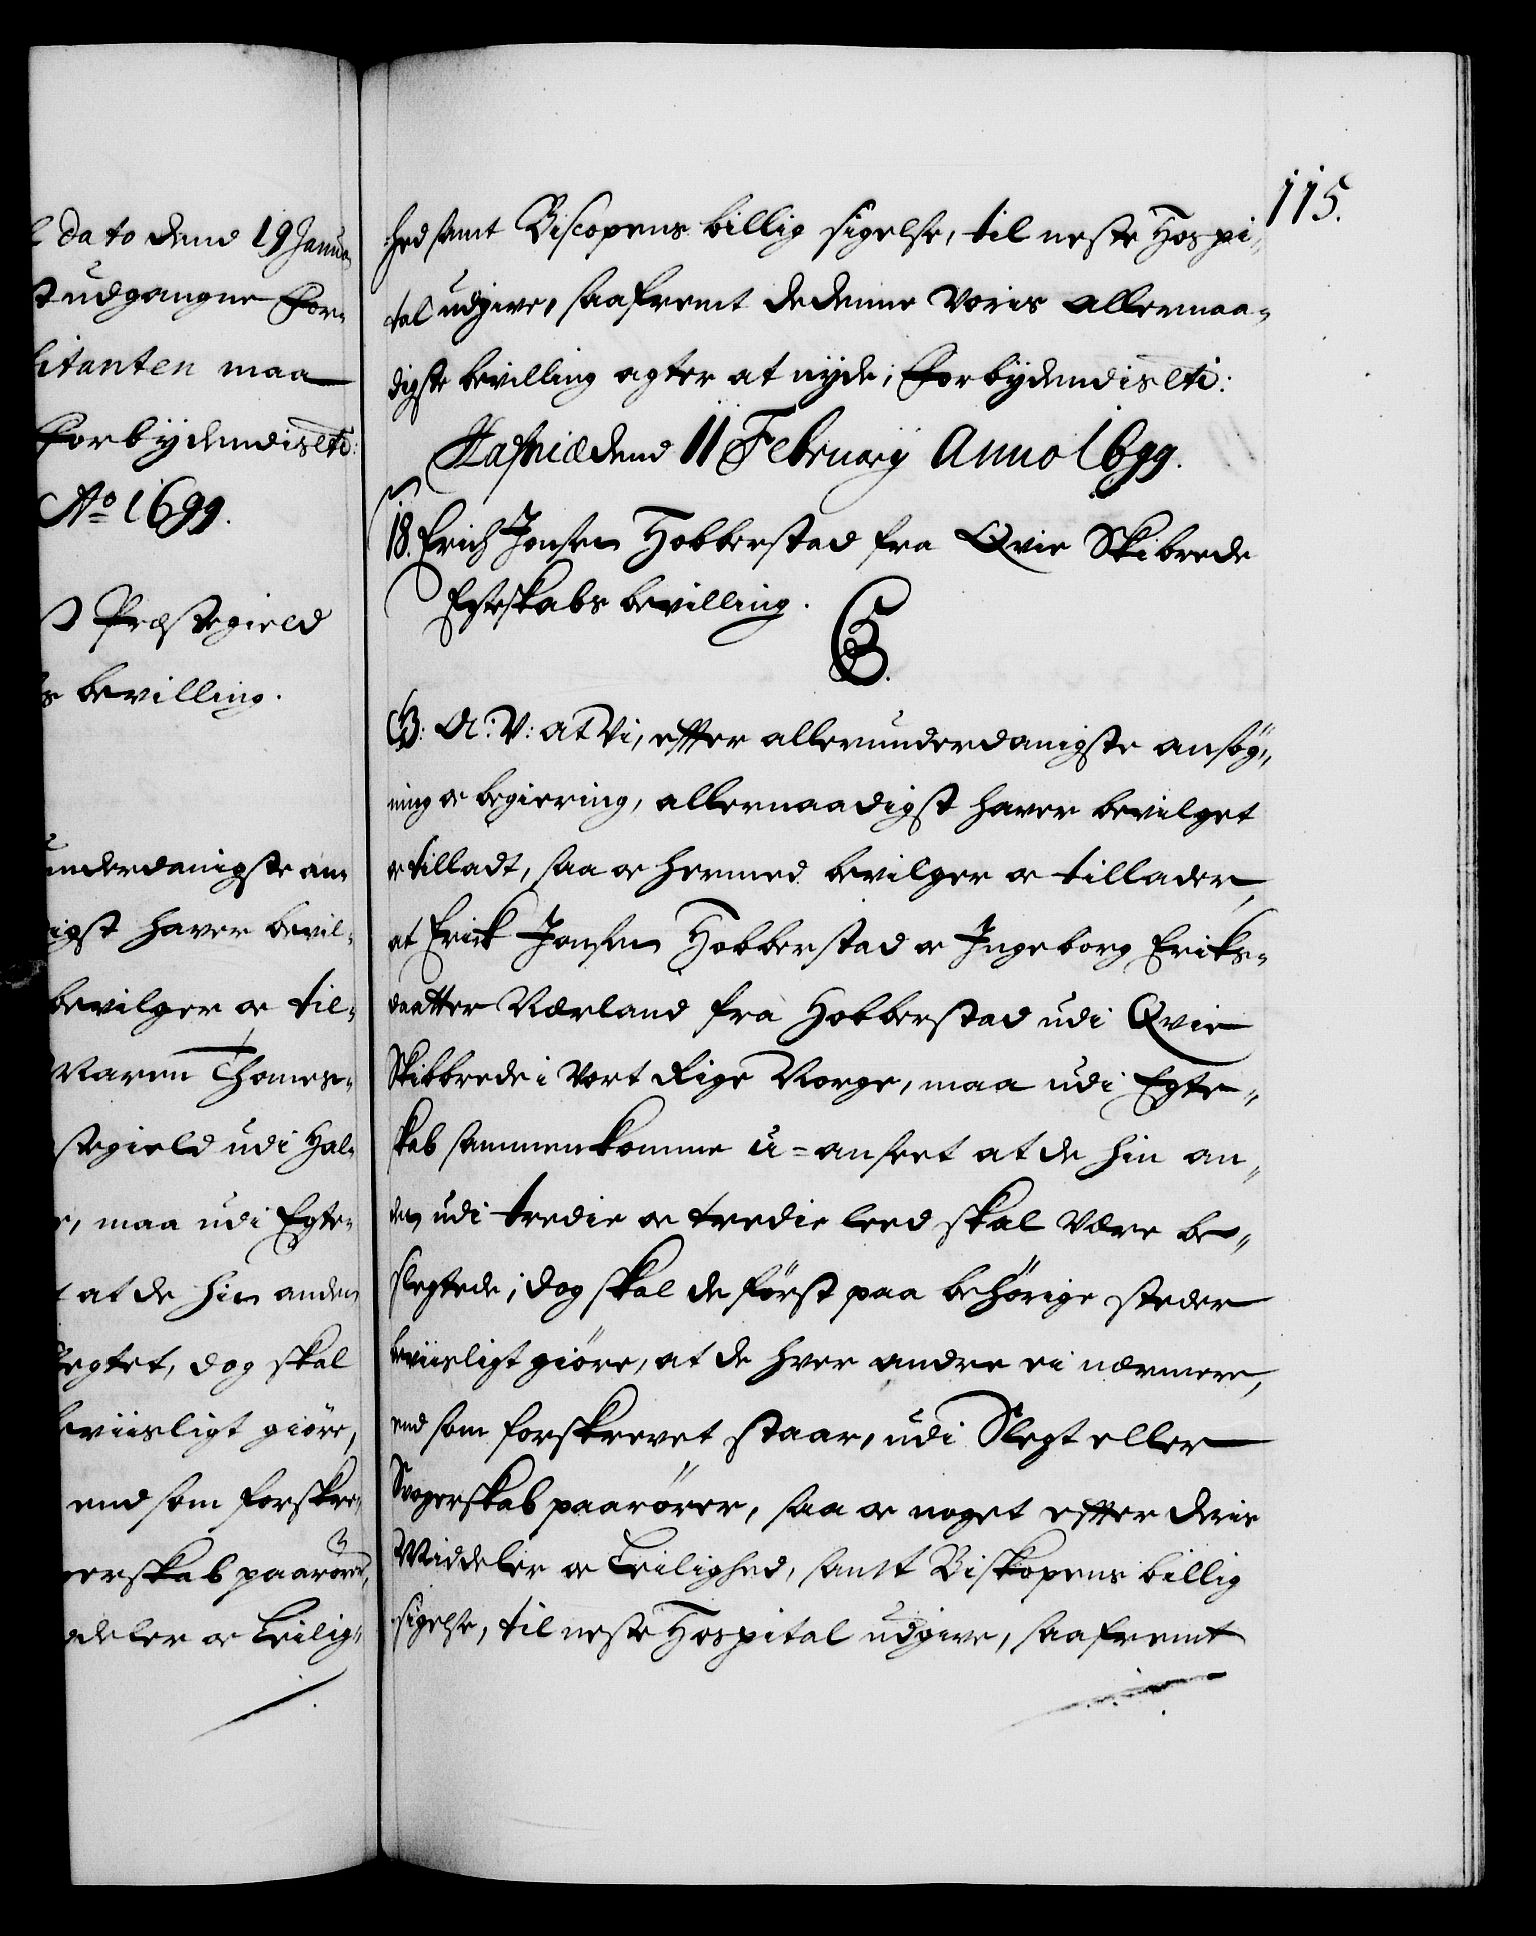 115.
l dato dend 19 Janua
st udgangne For-
litanten maa
Forbydendis etc:
Ao 1699.
Præstegield
s bevilling.
underdanigste an-
digst haver bevil-
bevilger oc til-
Maren Thomes-
stegield udi Hal-
e, maa udi Egte-
t at de hin anden
legtet, dog skal
beviisligt giöre,
end som forskre-
gerskab paarörer,
ddeler oc Leilig-
hed samt Biscopens billig sigelse, til neste Hospi-
tal udgive, saafremt de denne Voris allernaa-
digste bevilling agter at nyde; Forbydendis etc:
Hafniæ dend 11 February Anno 1699.
18. Erich Jonsen Hobberstad fra Qvie Skibrede
Egteskabs bevilling.
C5.
G: A: V: at Vi, effter allerunderdanigste ansög-
ning oc begiering, allernaadigst haver bevilget
oc tilladt, saa oc hermed bevilger oc tillader,
at Erick Jonsen Hobberstad oc Ingeborg Eriks-
daatter Nærland fra Hobberstad udi Qvie
Skibbrede i Vort Rige Norge, maa udi Egte-
skab sammenkomme u-anseet at de hin an-
den udi tredie oc tredie leed skal være be-
slegtede; dog skal de först paa behörige steder
beviisligt giöre, at de hver andre ei nærmere,
end som forskrevet staar, udi Slegt eller
Svogerskab paarörer, saa oc noget effter deris
Middeler oc Leilighed, samt Biskopens billig
sigelse, til neste Hospital udgive, saafremt